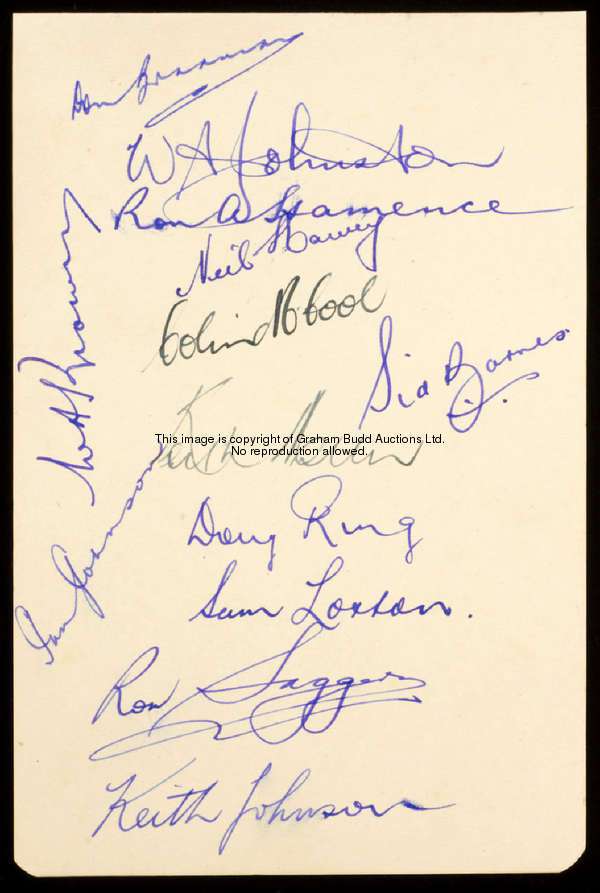 Don Bradman
W A Johnston
Ron A Hamence
Neil Harvey
W A Brown
Colin McCool
Sid Barnes
Keith Miller
This image is copyright of Graham Budd Auctions Ltd.
No reproduction allowed.
Ian Johnson
Doug Ring
Sam Loxton.
Ron Saggers
Keith Johnson